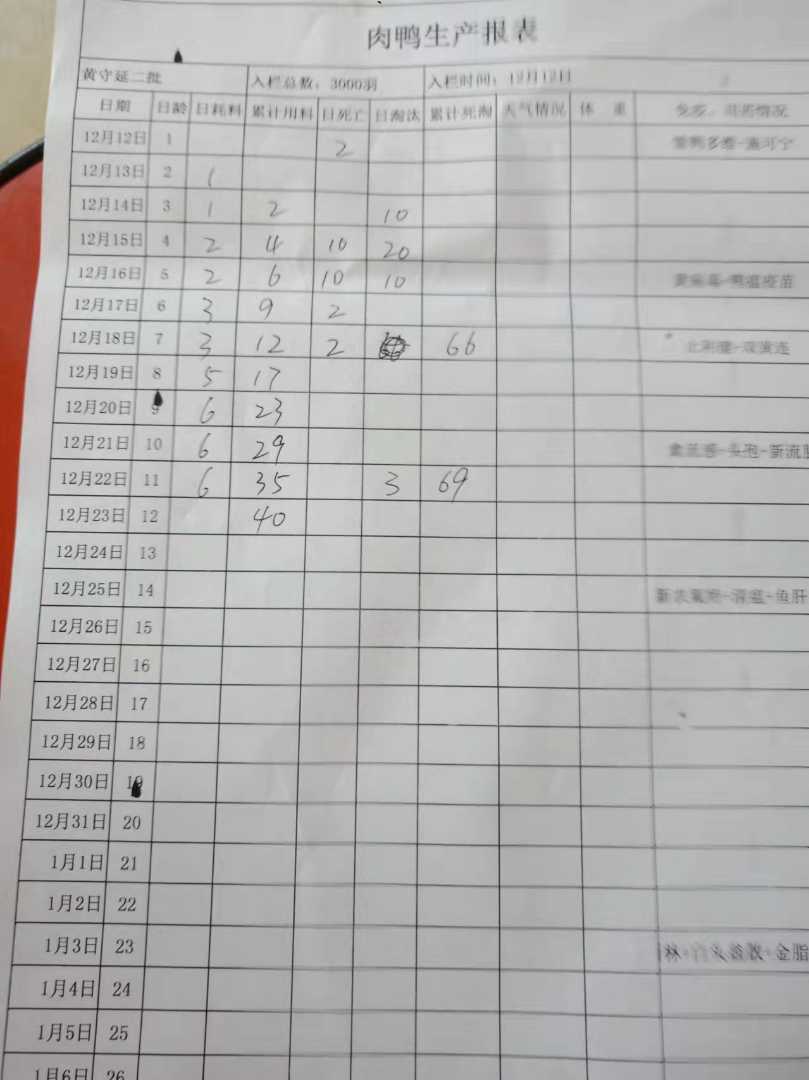 肉鸭生产报表
黄守延二批 入栏总数：3000羽 入栏时间：12月12日
日期 日龄 日耗料 累计用料 日死亡 日淘汰 累计死淘 天气情况 体 重
12月12日 1 2
12月13日 2 1
12月14日 3 1 2 10
12月15日 4 2 4 10 20
12月16日 5 2 6 10 10
12月17日 6 3 9 2
12月18日 7 3 12 2 66
12月19日 8 5 17
12月20日 9 6 23
12月21日 10 6 29
12月22日 11 6 35 3 69
12月23日 12 40
12月24日 13
12月25日 14
12月26日 15
12月27日 16
12月28日 17
12月29日 18
12月30日 19
12月31日 20
1月1日 21
1月2日 22
1月3日 23
1月4日 24
1月5日 25
1月6日 26